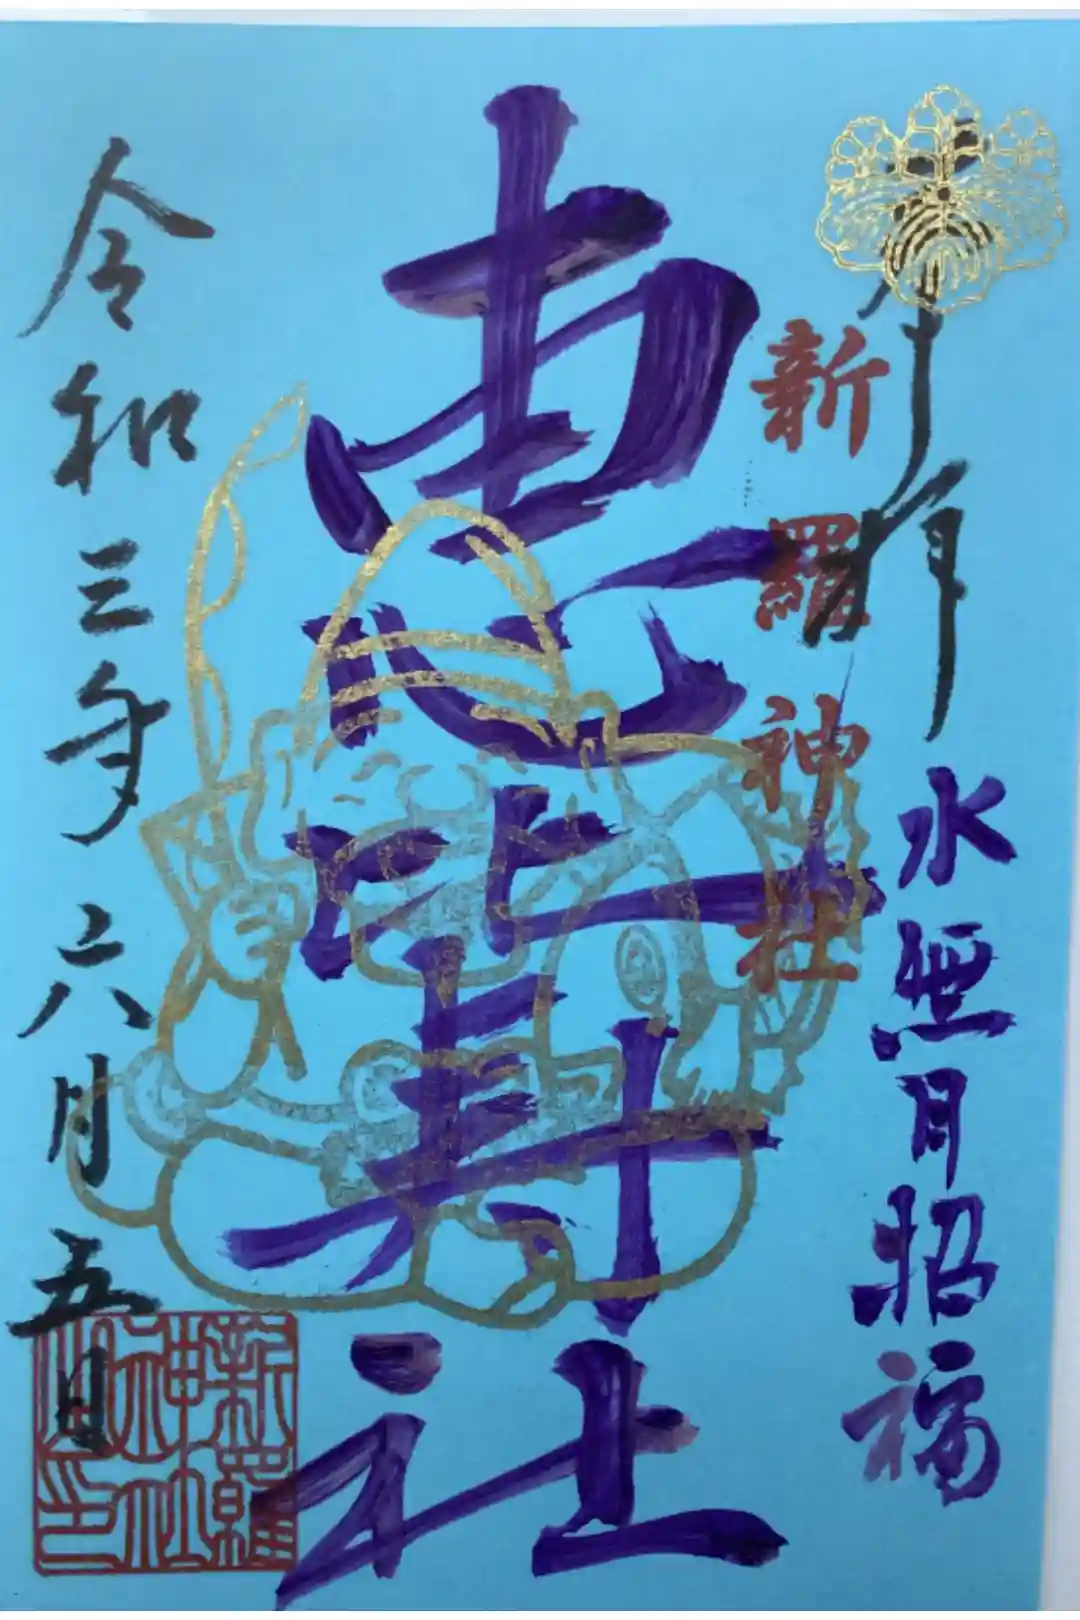 奉拝
水無月招福
新羅神社
恵比寿社
令和三年六月五日
新羅
神社
之印